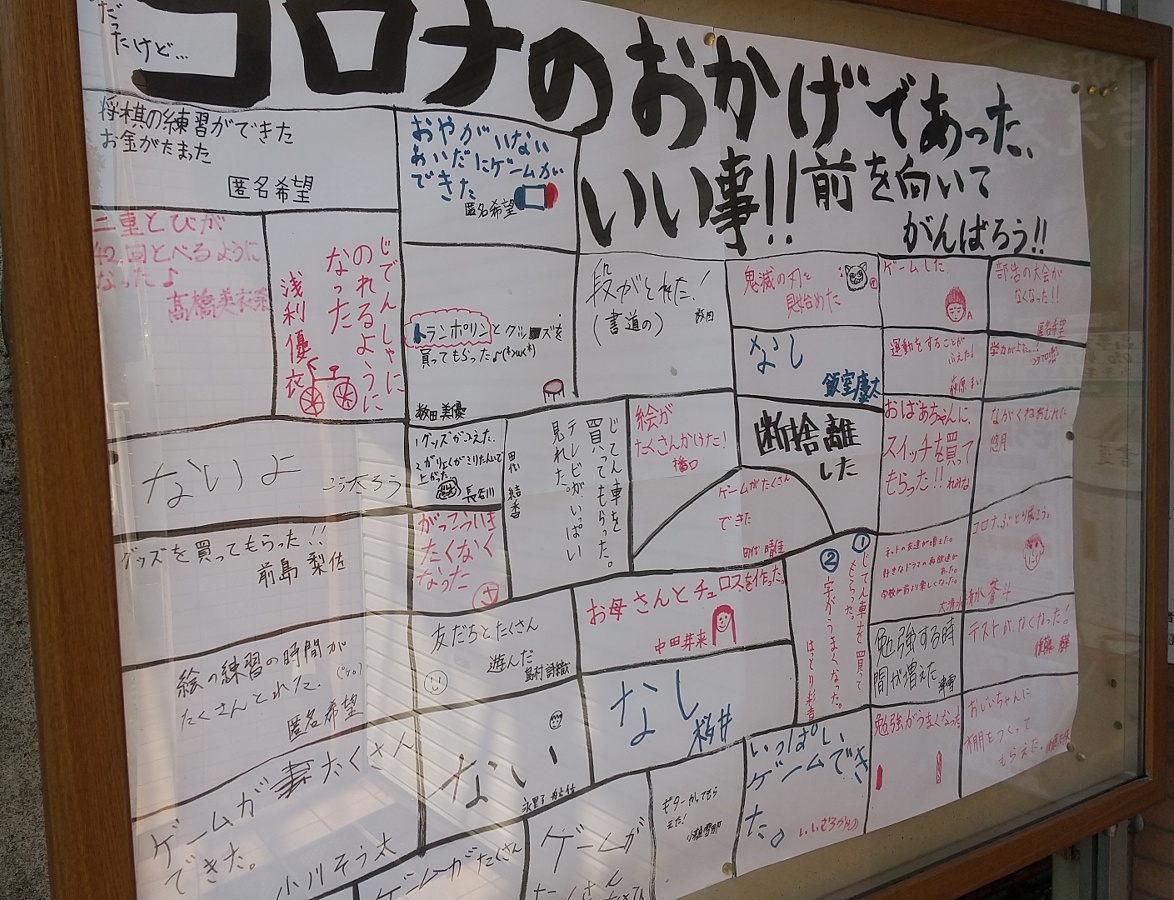 だったけど…
コロナのおかげであった、
いい事!!前を向いて
がんばろう!!
将棋の練習ができた
お金がたまった
匿名希望
おやがいない
あいだにゲームが
できた
匿名希望
二重とびが
42回とべるように
なった♪
高橋美衣菜
じでんしゃに
のれるように
なった
浅利優衣
トランポリンとグッズを
買ってもらった
数田美優
段がとれた!
(書道の)
鬼滅の刃を
見始めた
なし
ゲームした
運動をすることが
ふえた!
部活の大会が
なくなった!!
匿名希望
ないよ
こうたろう
グッズがこえた。
長谷川
がっこういき
たくなく
なった
じてん車を
買ってもらった。
テレビがいっぱい
見れた。
田代 結香
絵が
たくさんかけた!
橋口
断捨離
した
ゲームがたくさん
できた
田代 晴佳
おばあちゃんに、
スイッチを買って
もらった!!
グッズを買ってもらった!!
前島 梨佐
友だちとたくさん
遊んだ
お母さんとチュロスを作った。
中田芽来
①じてん車を買って
もらった。
②字がうまくなった。
はとり彩音
ネットの友達が増えた。
好きなドラマの再放送が
あった。
学校が前より楽しくなった。
コロナぶとり
勉強する時
間が増えた
テストがなくなった!
絵の練習の時間が
たくさんとれた。
匿名希望
ない
なし
桜井
勉強がうまくなった
おじいちゃんに
棚をつくって
もらえた。
ゲームがたくさん
できた。
小川そう太
ゲームがたくさん
ゲームが
たくさん
いっぱい
ゲームでき
た。